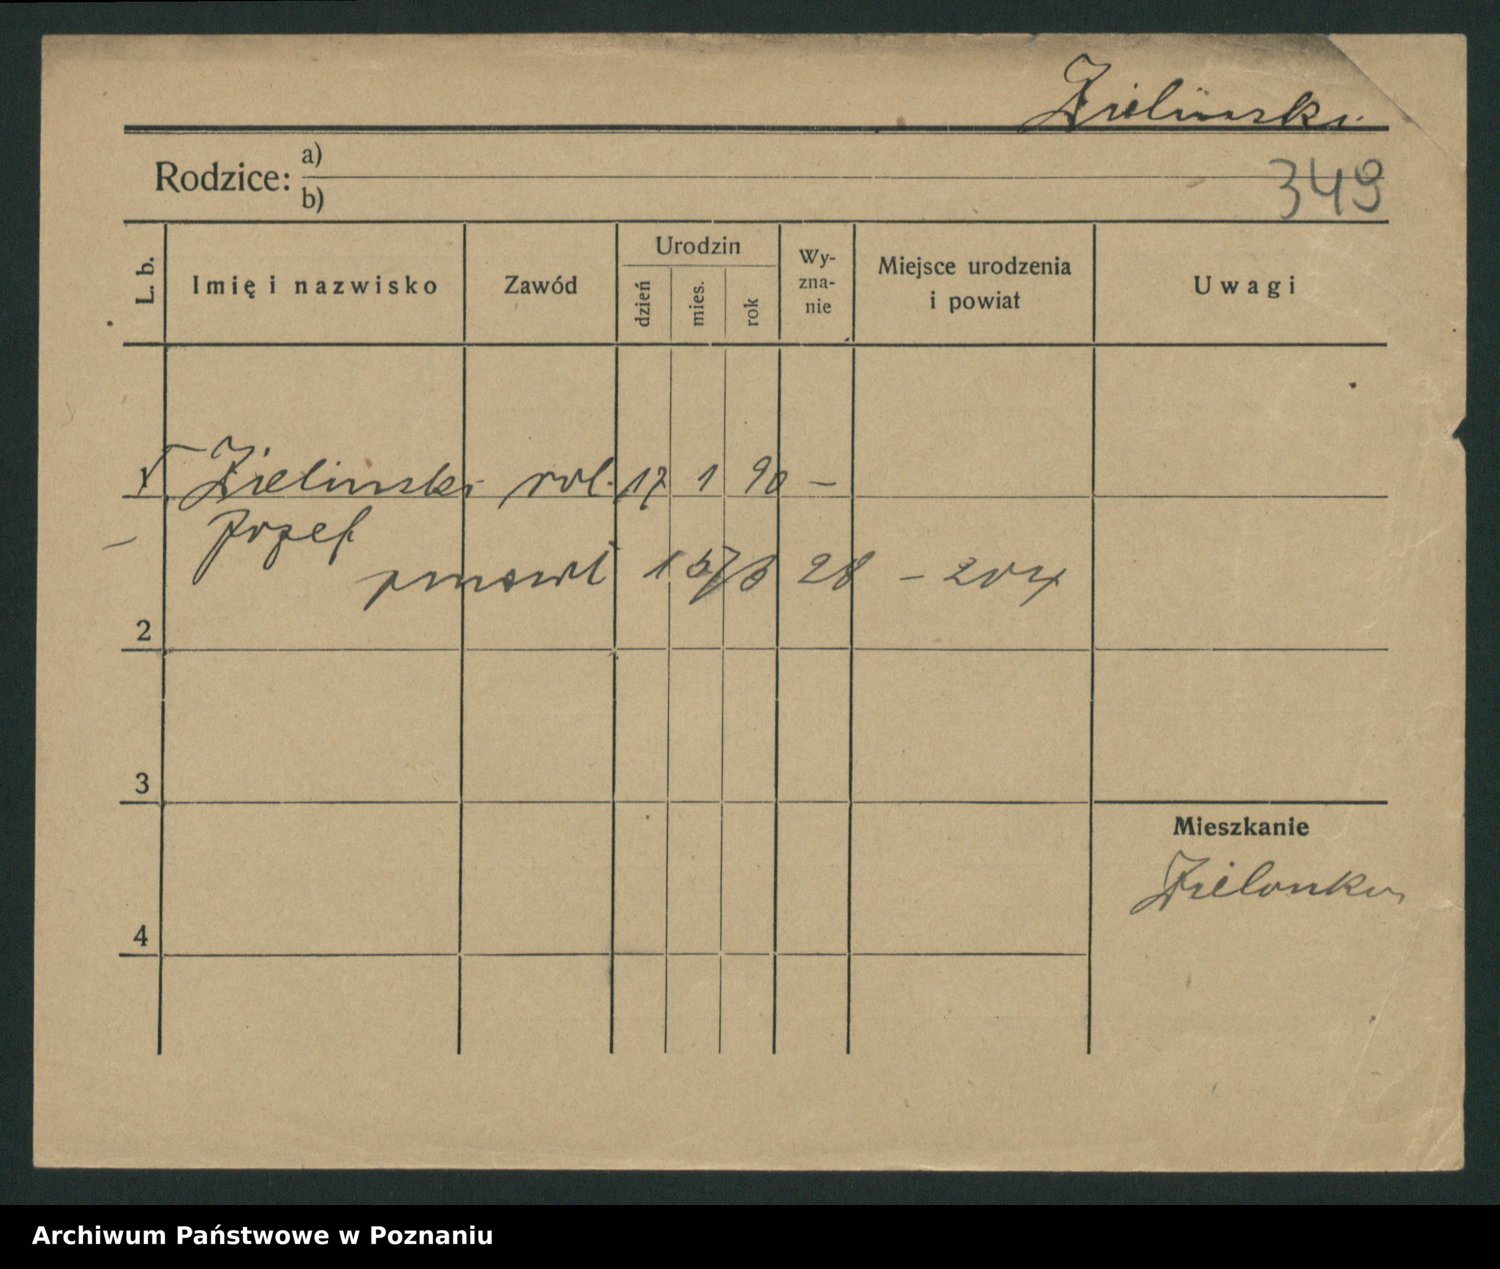 Zielinski
Rodzice: a)
b)
349
L. b. Imię i nazwisko Zawód Urodzin dzień mies. rok Wy-zna-nie Miejsce urodzenia i powiat Uwagi
1 Zielinski rol. 17 1 90 –
Jozef
zmarł 15/3 28 – 204
2
3
Mieszkanie
Zielonka
4
Archiwum Państwowe w Poznaniu